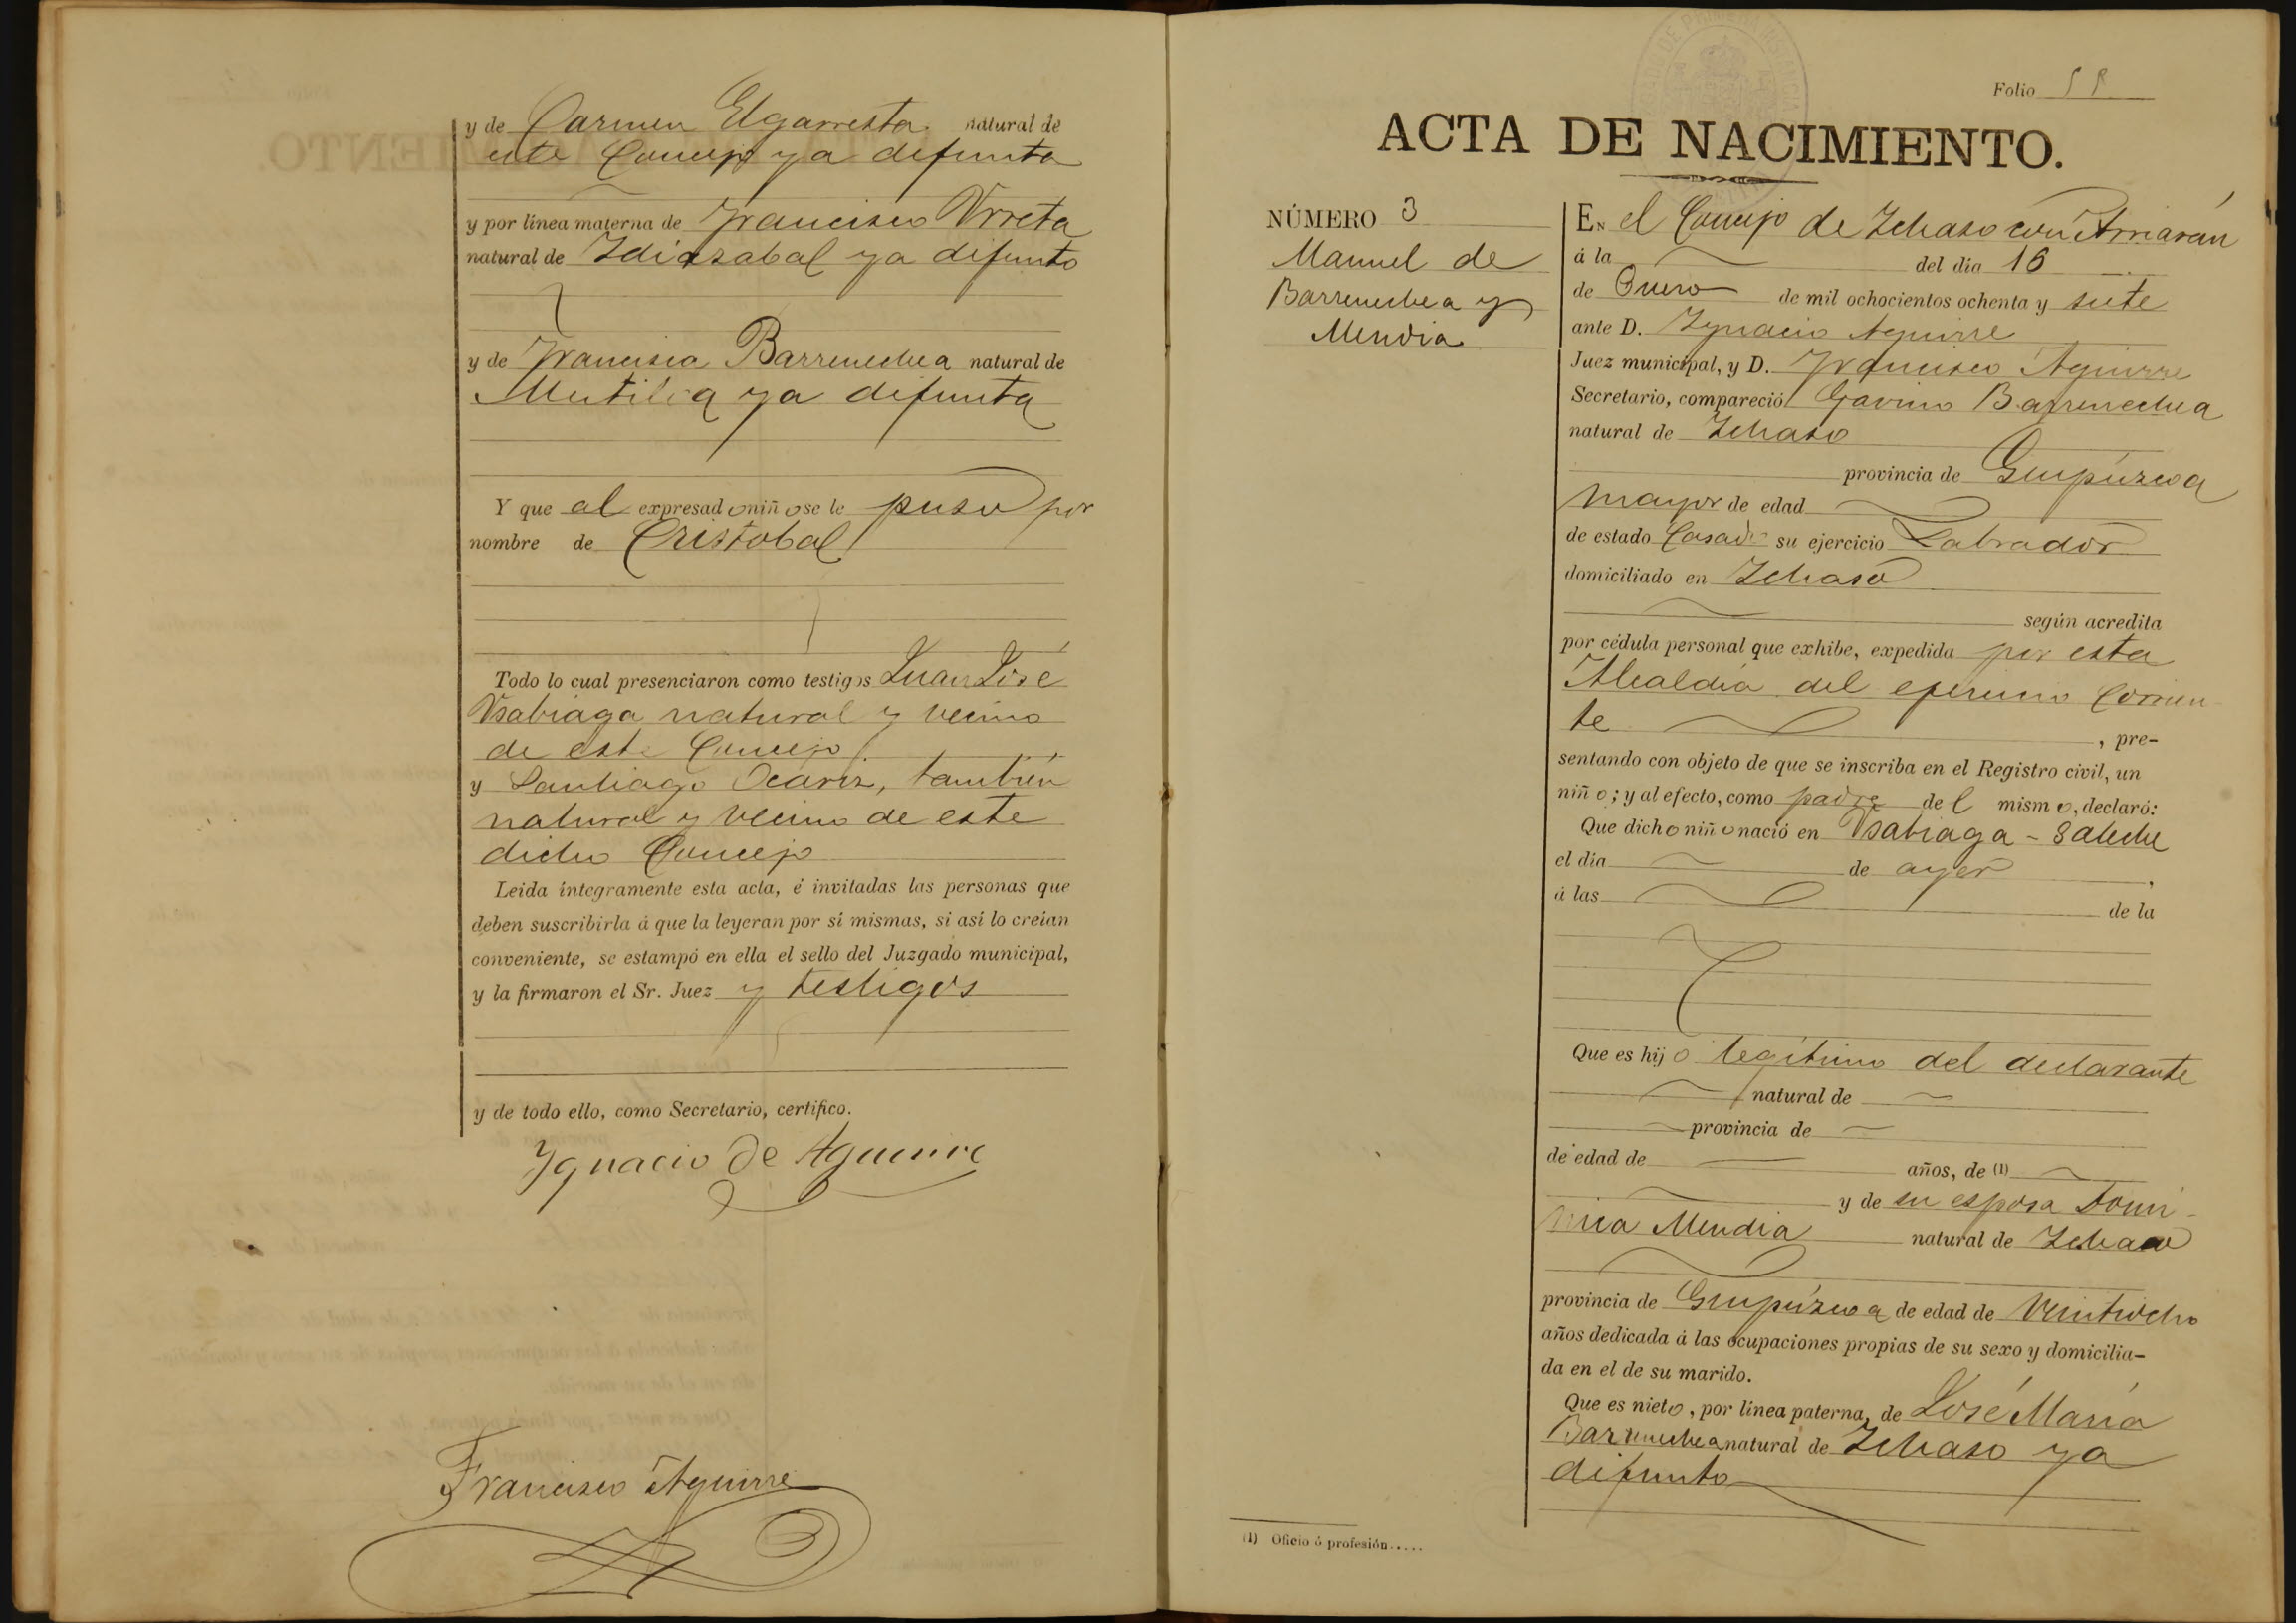 y de Carmen Elgarresta natural de
este Concejo ya difunta
y por línea materna de Francisco Urreta
natural de Idiazabal ya difunto
y de Francisca Barrenechea natural de
Mutiloa ya difunta
Y que al expresado niño se le puso por
nombre de Cristobal
Todo lo cual presenciaron como testigos Juan José
Usabiaga natural y vecino
de este Concejo
y Santiago Ocáriz, también
natural y vecino de este
dicho Concejo
Leida íntegramente esta acta, é invitadas las personas que
deben suscribirla á que la leyeran por sí mismas, si así lo creían
conveniente, se estampó en ella el sello del Juzgado municipal,
y la firmaron el Sr. Juez y testigos
y de todo ello, como Secretario, certifico.
Ygnacio de Aguirre
Francisco Aguirre
Folio
ACTA DE NACIMIENTO.
NÚMERO 3
Manuel de
Barrenechea y
Mendia
En el Concejo de Ichaso con Arriarán
á la del dia 16
de Enero de mil ochocientos ochenta y siete
ante D. Ygnacio Aguirre
Juez municipal, y D. Francisco Aguirre
Secretario, compareció Gavino Barrenechea
natural de Ichaso
provincia de Guipúzcoa
mayor de edad
de estado Casado su ejercicio Labrador
domiciliado en Ichaso
según acredita
por cédula personal que exhibe, expedida por esta
Alcaldia del ejercicio corrien-
te , pre-
sentando con objeto de que se inscriba en el Registro civil, un
niño; y al efecto, como padre del mismo, declaró:
Que dicho niño nació en Usabiaga-
el dia de ayer ,
á las de la
Que es hijo legítimo del declarante
natural de
provincia de
de edad de años, de (1)
y de su esposa Domi-
nica Mendia natural de Ichaso
provincia de Guipúzcoa de edad de veintiocho
años dedicada á las ocupaciones propias de su sexo y domicilia-
da en el de su marido.
Que es nieto, por línea paterna, de José María
Barrenechea natural de Ichaso ya
difunto
(1) Oficio ó profesión.....